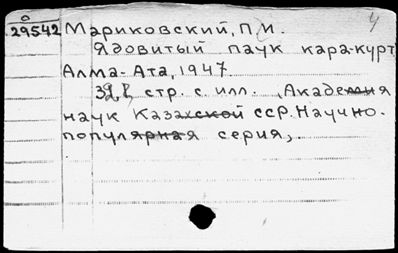 а
29542 Мариковский, П.И.
Ядовитый паук кара-курт
Алма-Ата, 1947.
стр. с илл. (Академия
наук Казахской ССР. Научно-
популярная серия,